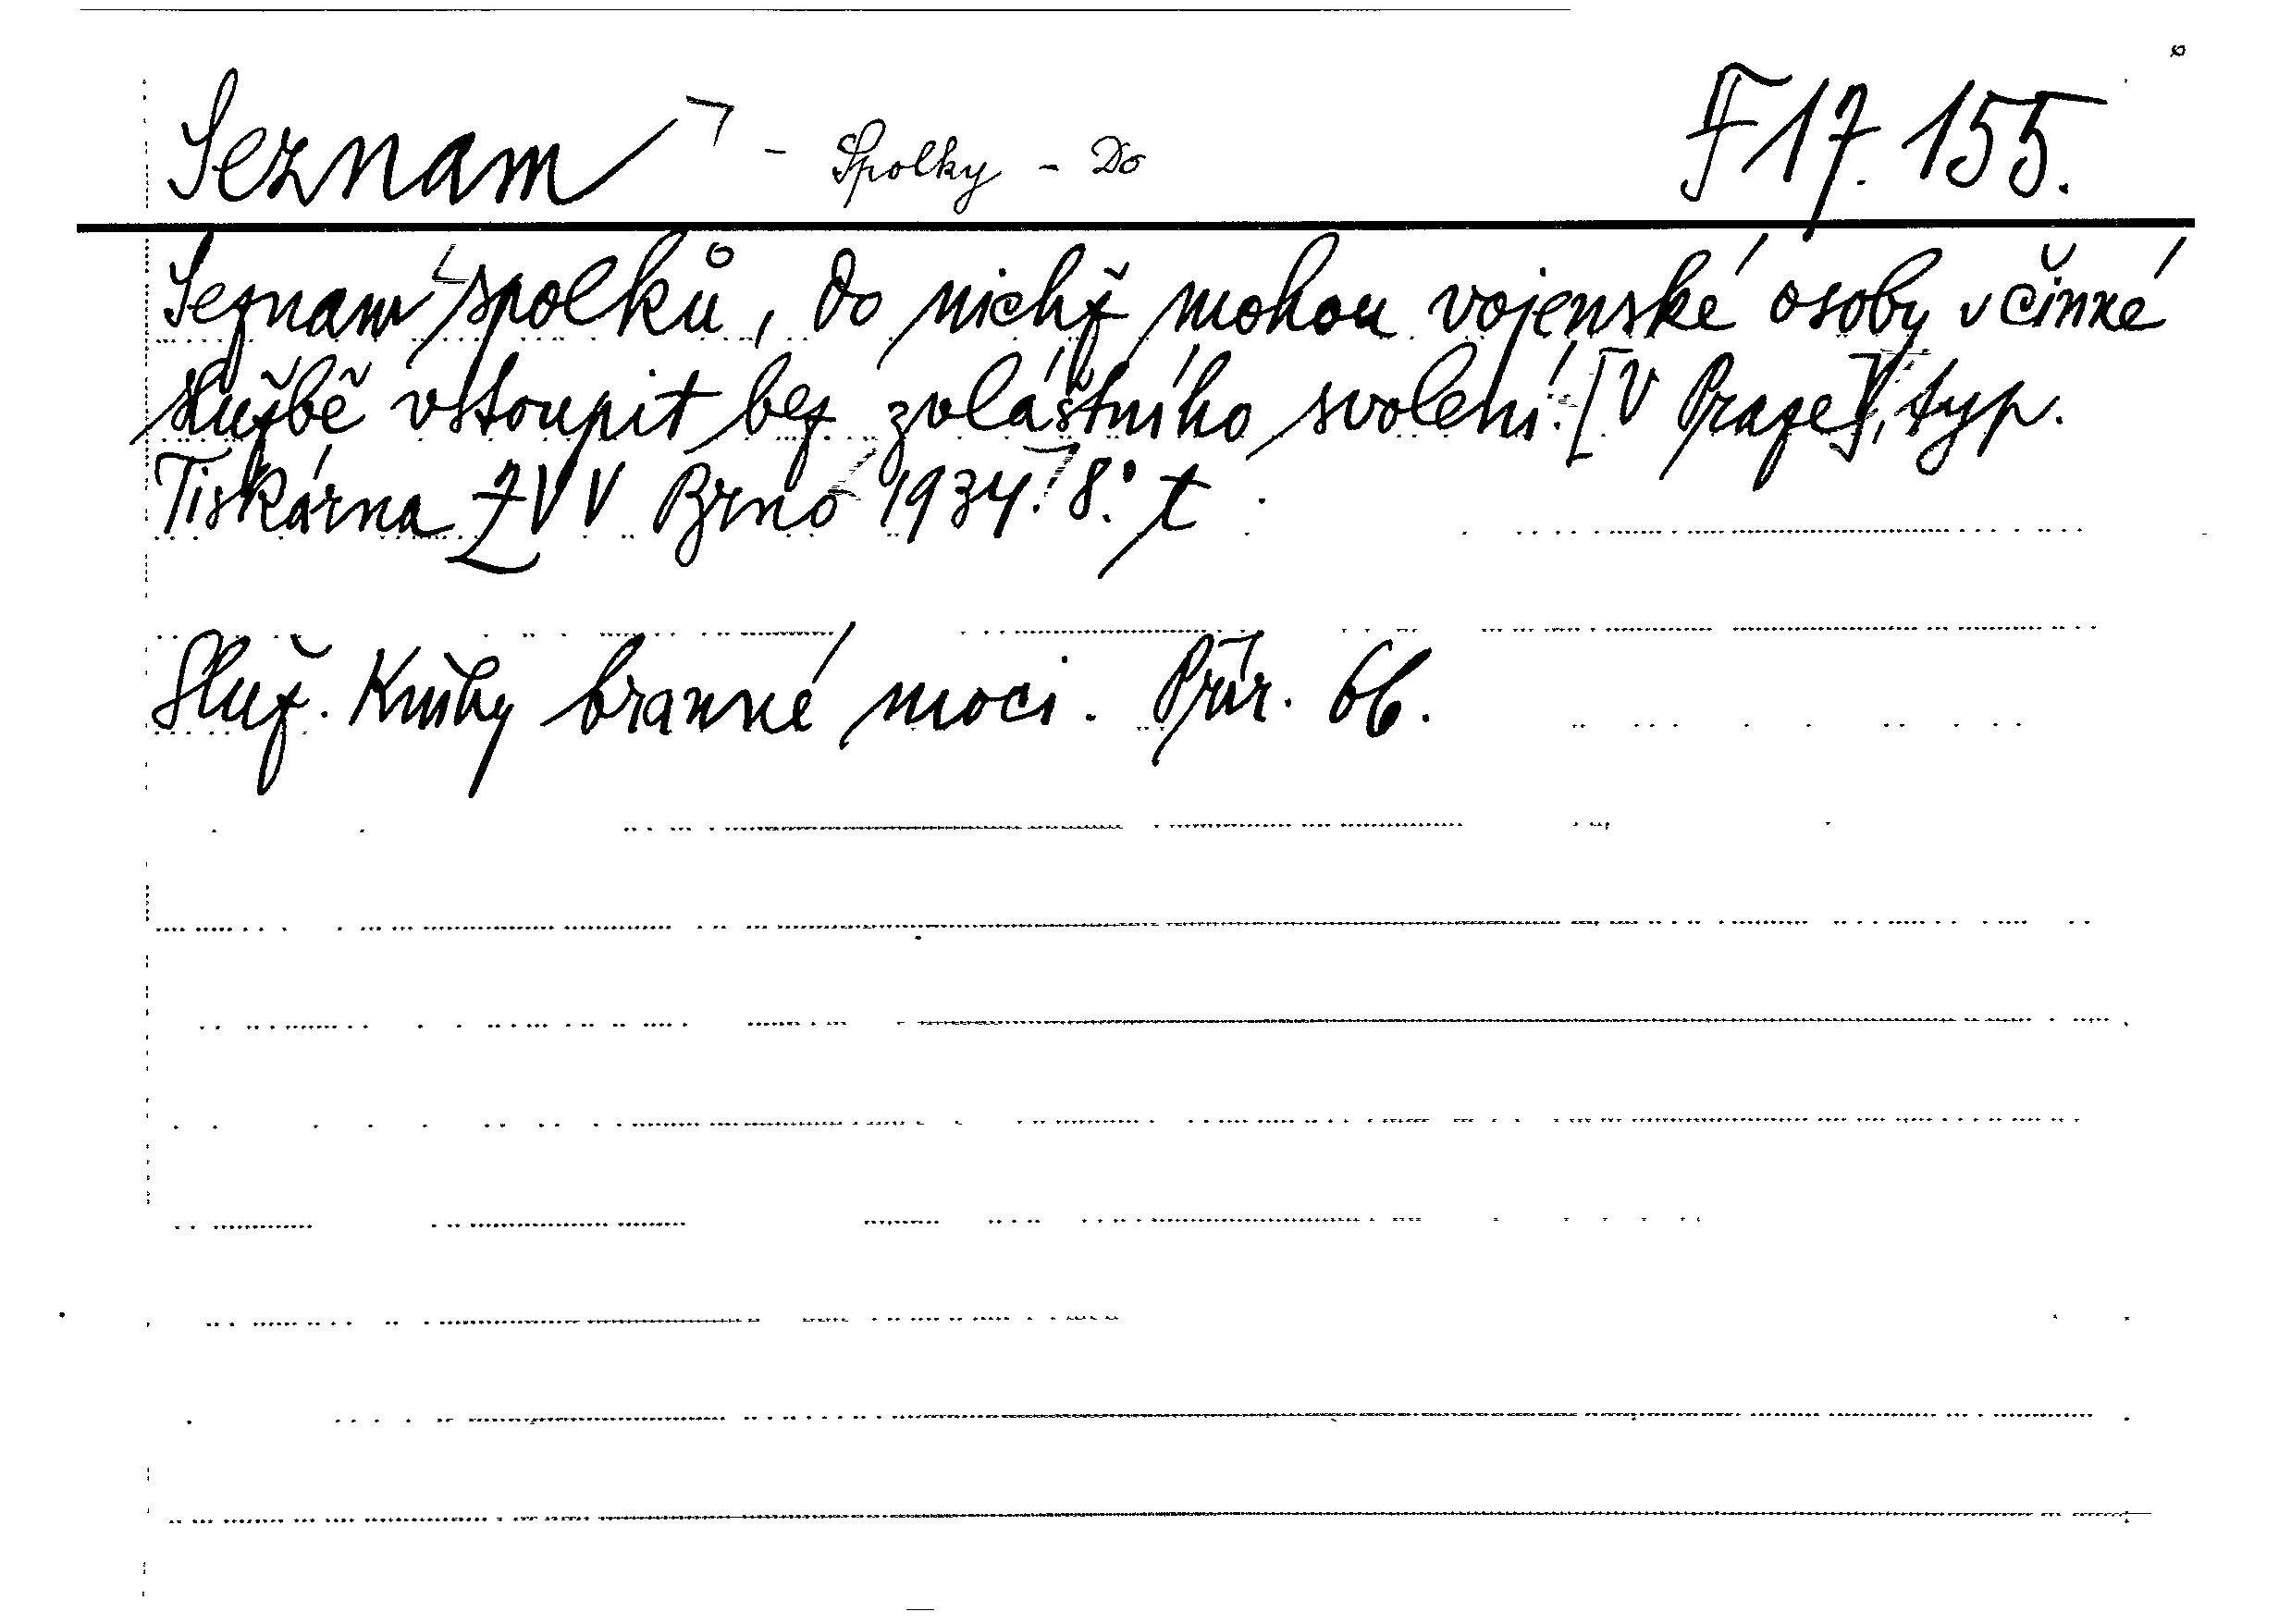 Seznam - Spolky - Do F 17.155.
Seznam spolků, do nichž mohou vojenské osoby v činné
službě vstoupit bez zvláštního svolení. [V Praze], typ.
Tiskárna ZVV Brno 1934. 8° t
Služ. Knihy branné moci. Prūr. 66.